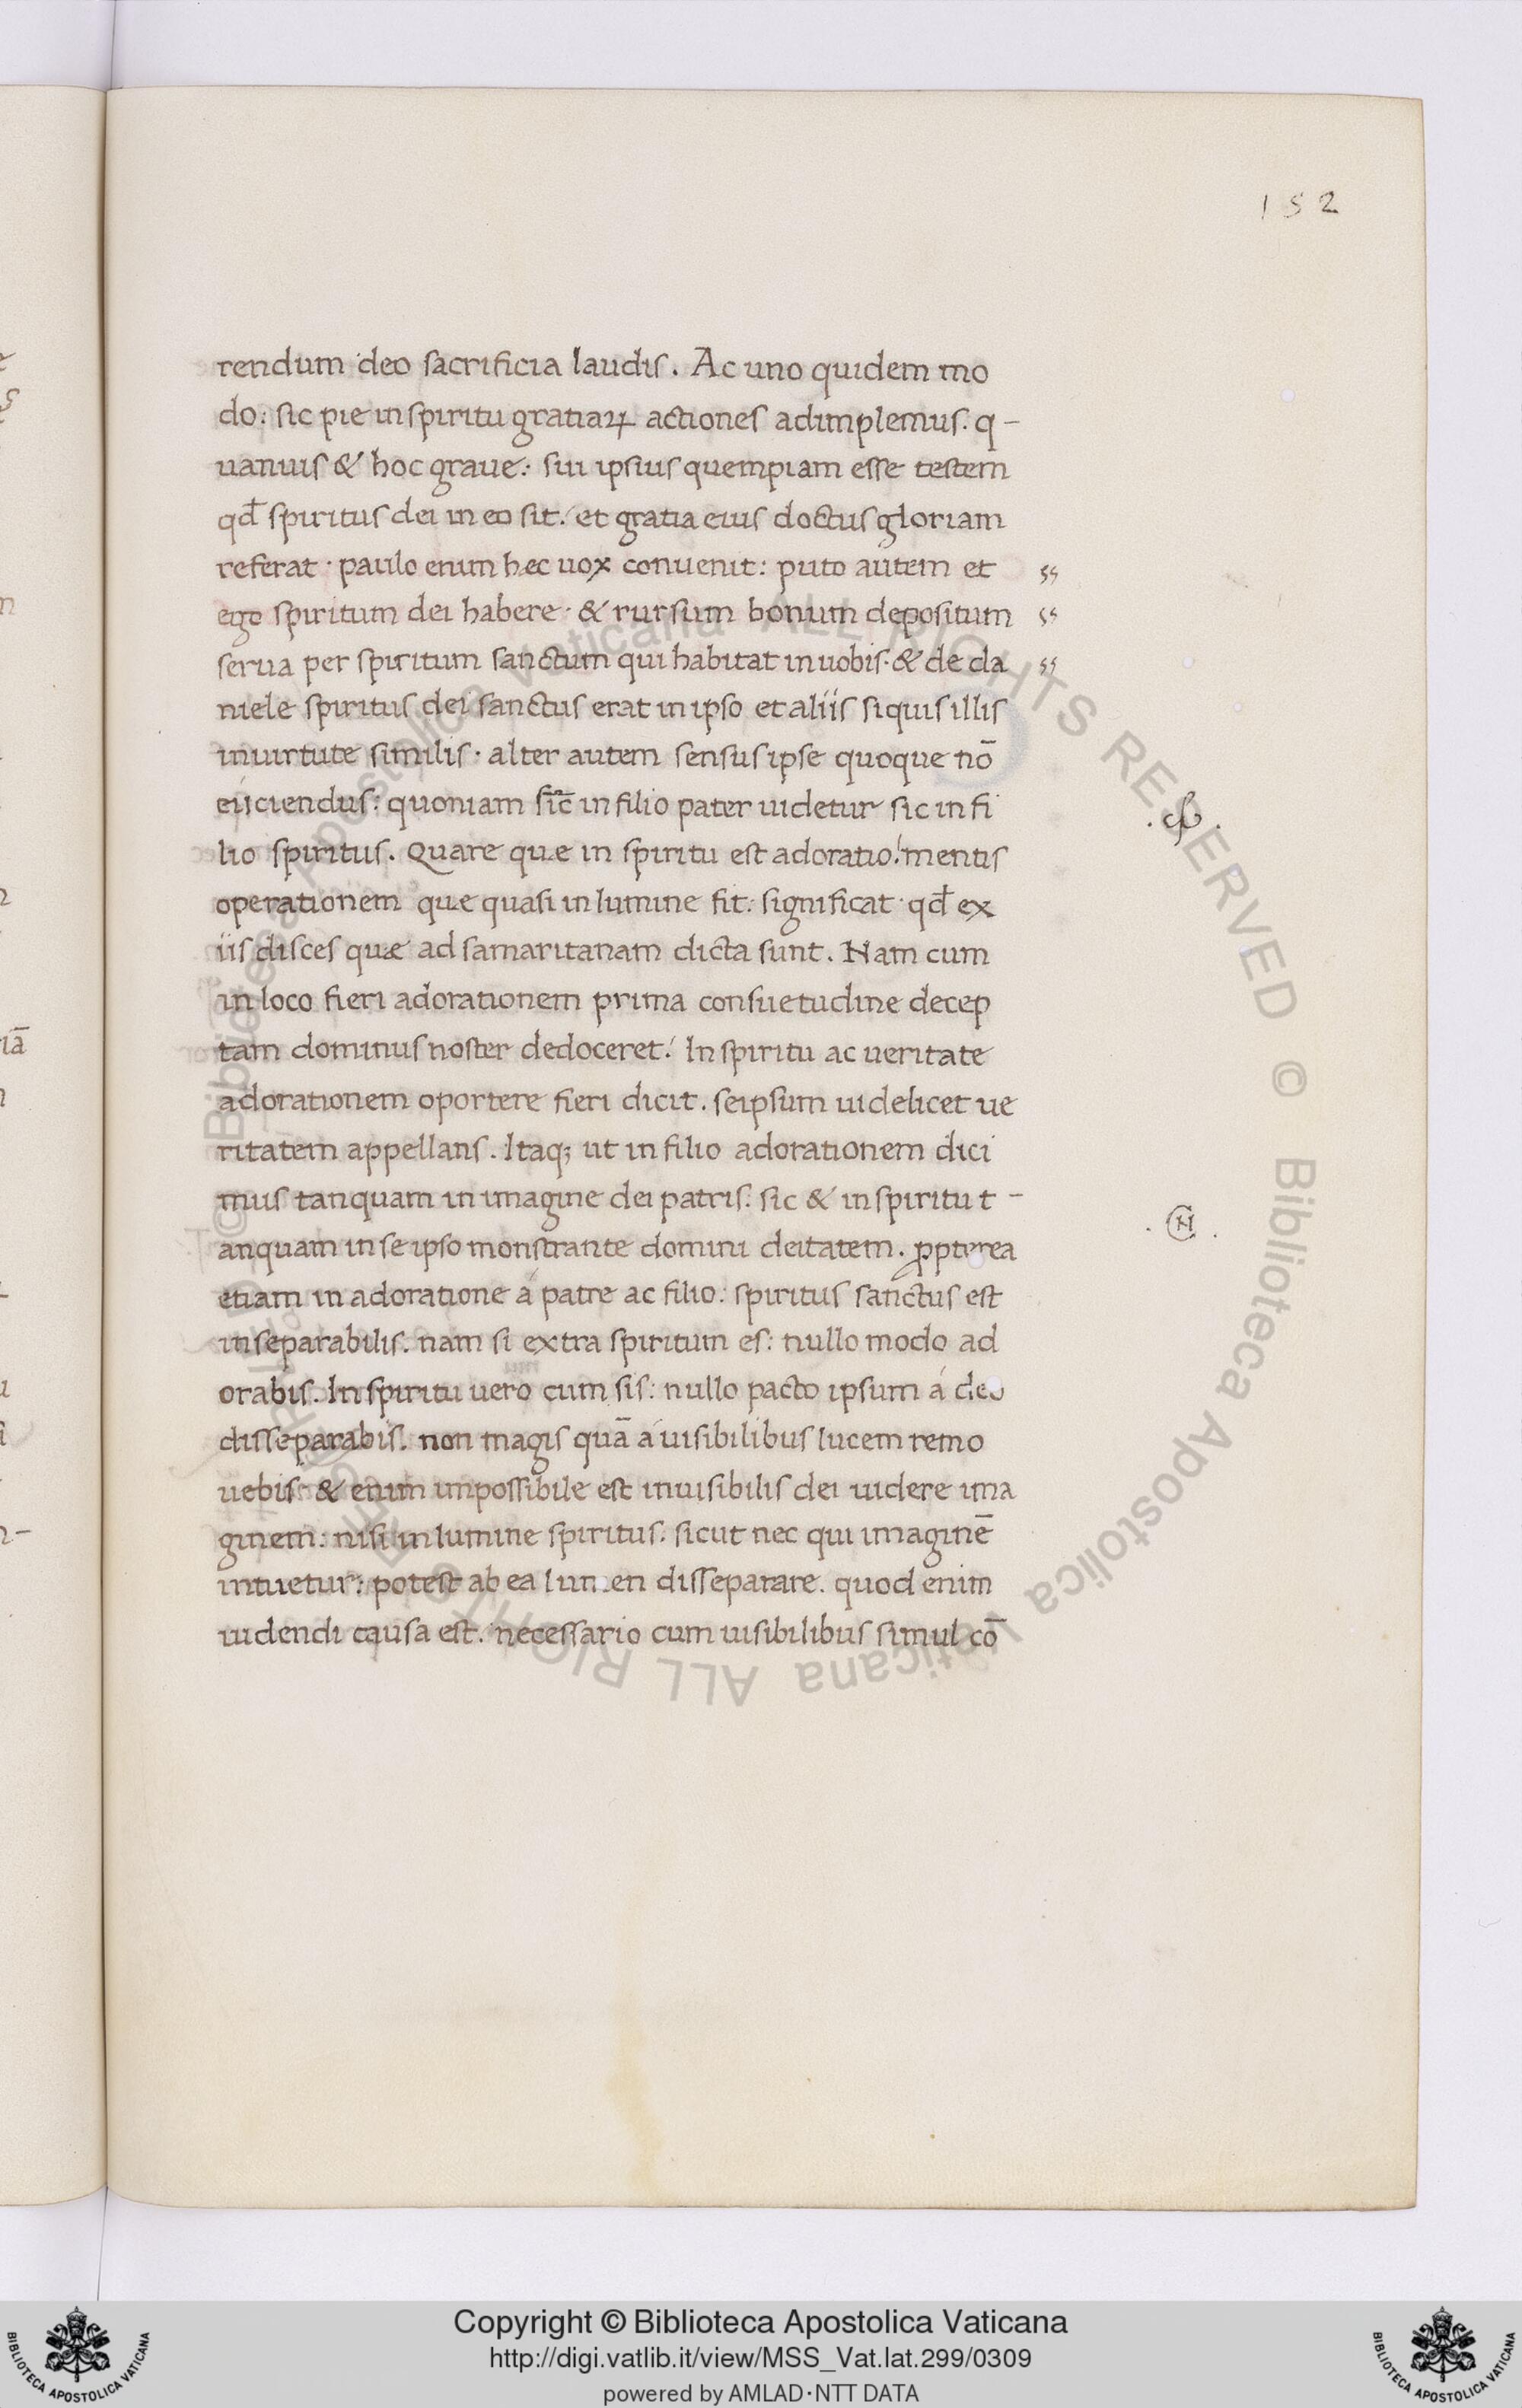 152
rendum deo sacrificia laudis. Ac uno quidem mo
do: sic pie in spiritu gratiaꝝ actiones adimplemus. q-
uanuis & hoc graue: sui ipsius quempiam esse testem
qđ spiritus dei in eo sit. et gratia eius doctus gloriam
referat· paulo enim hec uox conuenit: puto autem et
ego spiritum dei habere· & rursum bonum depositum
serua per spiritum sanctum qui habitat in uobis· & de da
niele spiritus dei sanctus erat in ipso et aliis siquis illis
in uirtute similis· alter autem sensus ipse quoque nō
eiiciendus: quoniam sic in filio pater uidetur sic in fi
lio spiritus. Quare que in spiritu est adoratio: mentis
operationem que quasi in lumine fit: significat· qđ ex
iis disces quæ ad samaritanam dicta sunt. Nam cum
in loco fieri adorationem prima consuetudine decep
tam dominus noster dedoceret: In spiritu ac ueritate
adorationem oportere fieri dicit. seipsum uidelicet ue
ritatem appellans. Itaq; ut in filio adorationem dici
mus tanquam in imagine dei patris: sic & in spiritu t-
anquam in se ipso monstrante domini deitatem. ꝓpterea
etiam in adoratione á patre ac filio: spiritus sanctus est
inseparabilis. nam si extra spiritum es: nullo modo ad
orabis. In spiritu uero cum sis: nullo pacto ipsum á deo
disseparabis. non magis quā á uisibilibus lucem remo
uebis· & enim impossibile est inuisibilis dei uidere ima
ginem: nisi in lumine spiritus. sicut nec qui imaginē
intuetur: potest ab ea lumen disseparare. quod enim
uidendi causa est. necessario cum uisibilibus simul cō
Copyright © Biblioteca Apostolica Vaticana
http://digi.vatlib.it/view/MSS_Vat.lat.299/0309
powered by AMLAD·NTT DATA